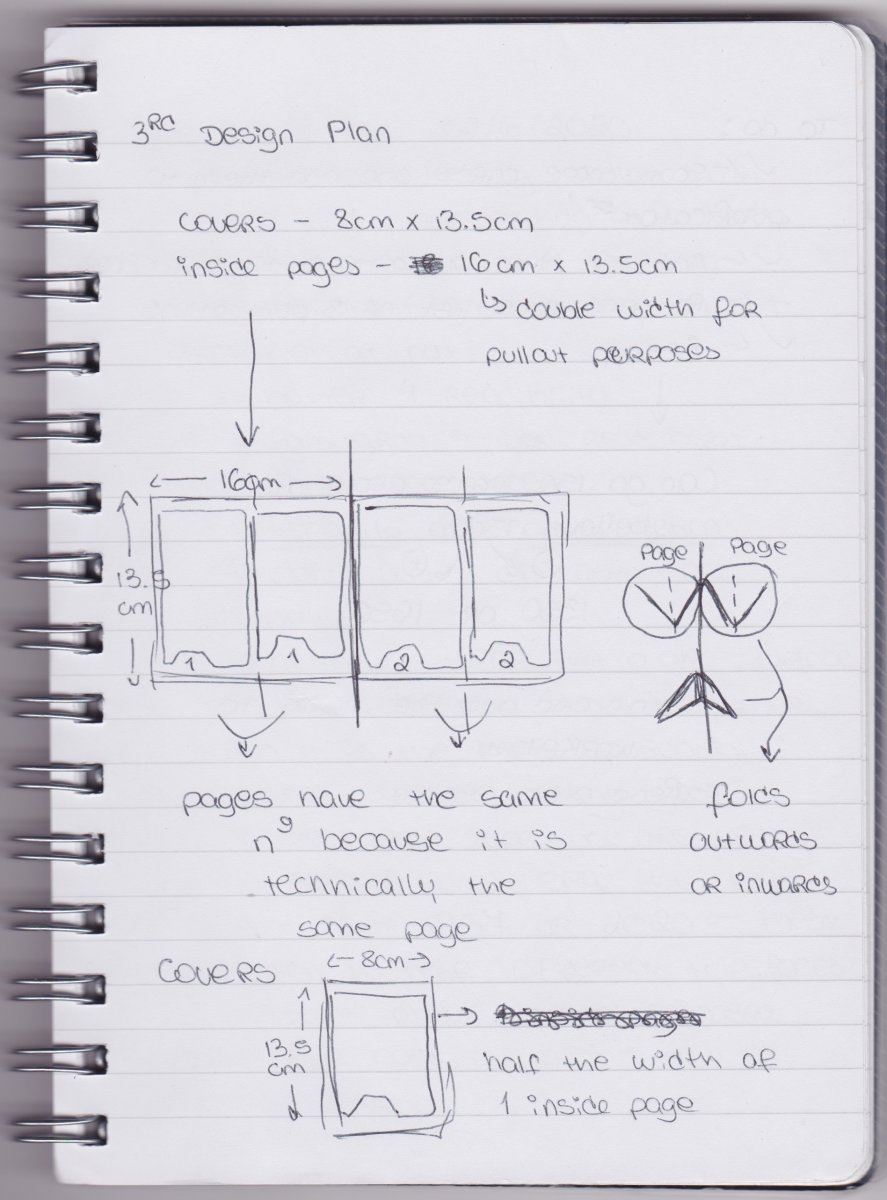 3RD Design Plan
COVERS - 8cm x 13.5cm
inside pages - 16cm x 13.5cm
↳ double width for
pullout perposes
← 16cm →
13.5
cm
1 1 2 2
Page Page
pages have the same
nº because it is
technically the
same page
folds
outwards
or inwards
COVERS
←8cm→
13.5
cm
half the width of
1 inside page